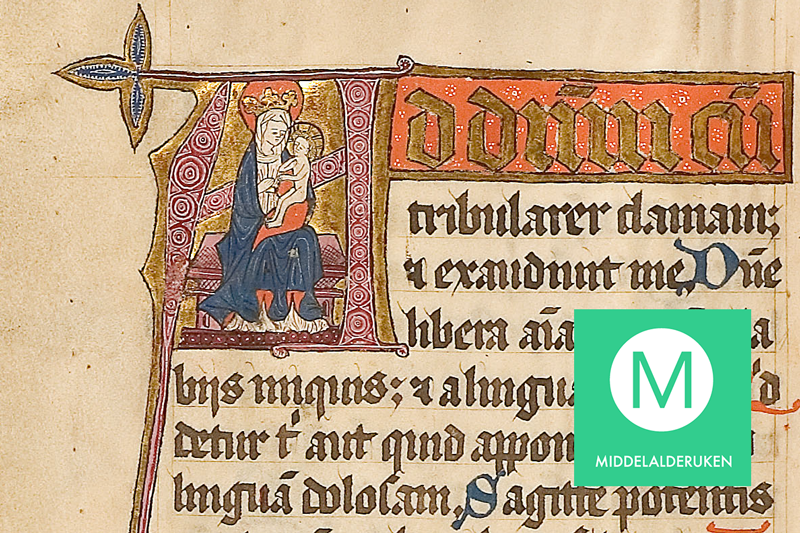 Ad dñm cū
tribularer clamaui;
⁊ exaudiuit me, Dñe
libera aīa la
bijs iniquis; ⁊ a lingu
detur t̄ aut quid appon
linguā doloſam, Sagitte potentis
M
MIDDELALDERUKEN